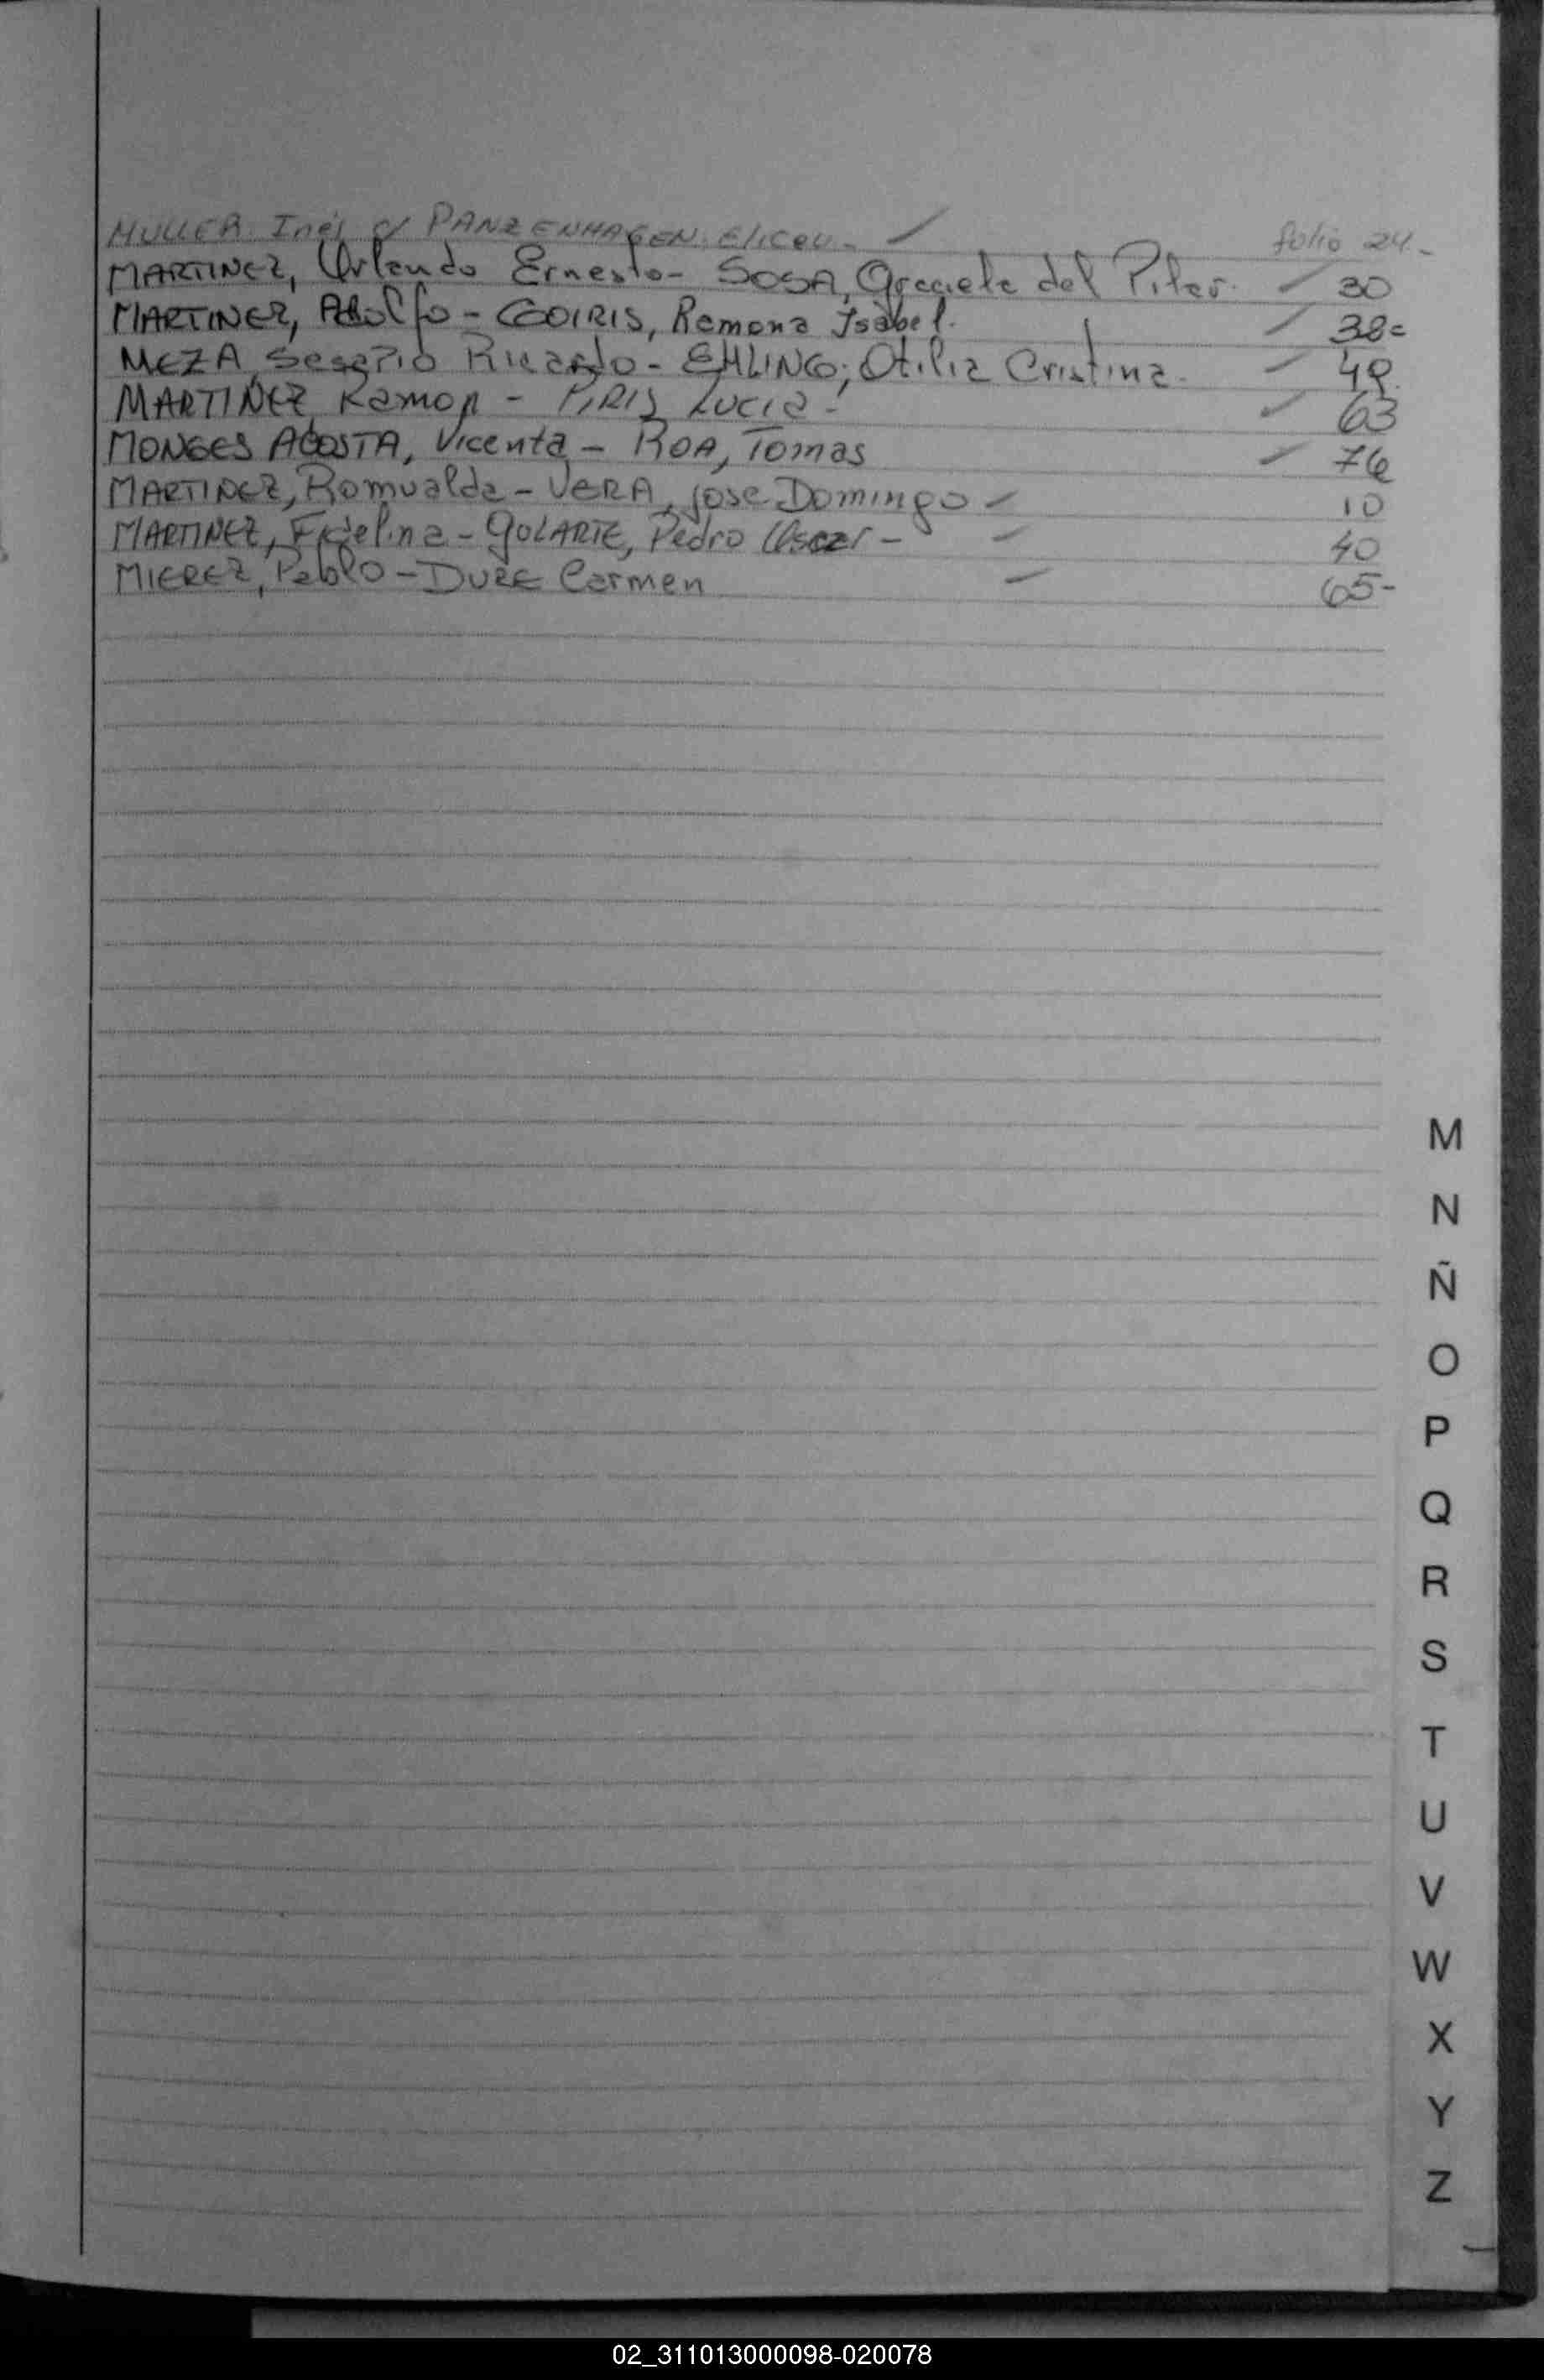 MULLER Inés c/ PANZENHAGEN Eliceu - folio 24 -
MARTINEZ, Orlando Ernesto - SOSA, Graciela del Pilar. 30
MARTINEZ, Adolfo - GOIRIS, Ramona Isabel. 38=
MEZA, Ricardo - EHLING, Otilia Cristina. 49.
MARTINEZ Ramon - PIRIS Lucia - 63
MONGES ACOSTA, Vicenta - ROA, Tomas 76
MARTINEZ, Romualda - VERA, Jose Domingo 10
MARTINEZ, Fidelina - GOLARTE, Pedro Oscar - 40
MIEREZ, Pablo - DURE Carmen 65-
M
N
Ñ
O
P
Q
R
S
T
U
V
W
X
Y
Z
02_311013000098-020078